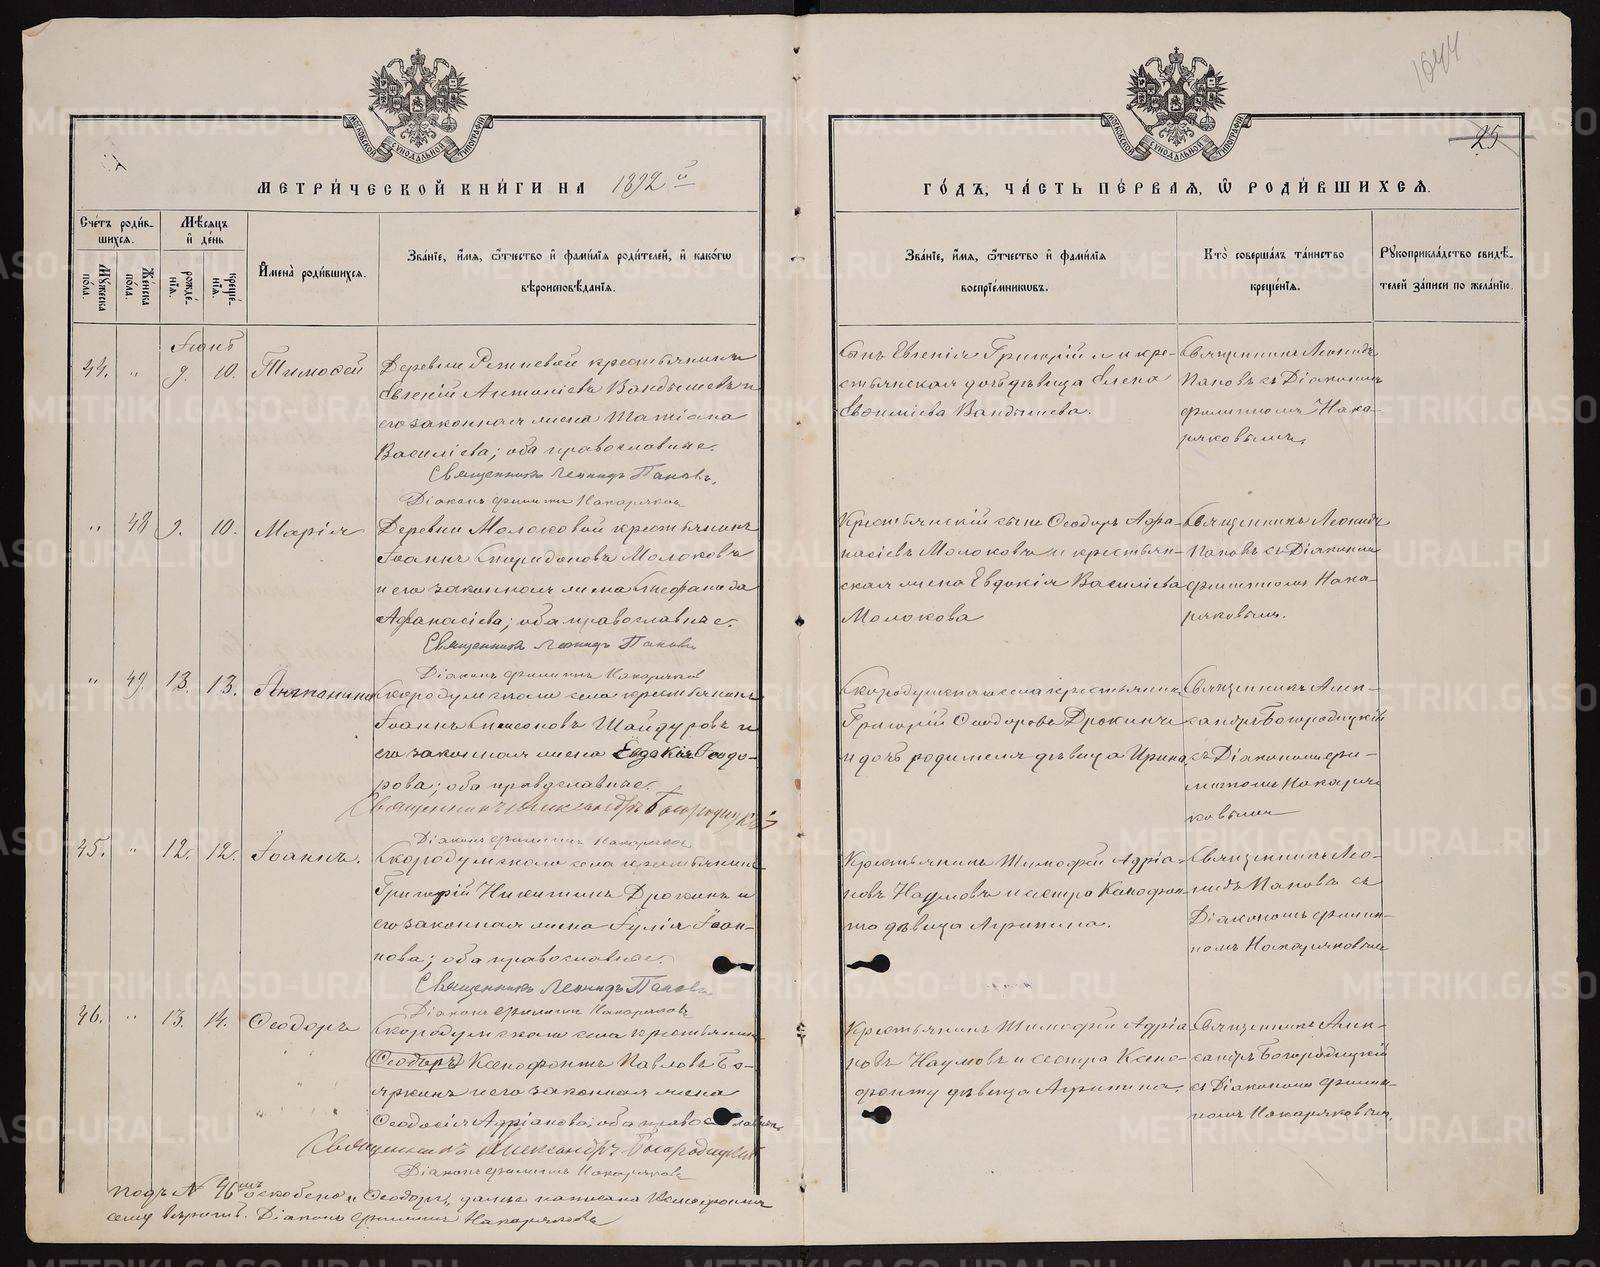 1644
25
МОСКОВСКОЙ СѴНОДАЛЬНОЙ ТИПОГРАФІИ
МОСКОВСКОЙ СѴНОДАЛЬНОЙ ТИПОГРАФІИ
МЕТРИ́ЧЕСКОЙ КНИ́ГИ НА 1892 й
ГО́ДЪ, ЧА́СТЬ ПЕ́РВАЯ, Ѡ РОДИ́ВШИХСЯ.
Сче́тъ роди́в-
шихся.
Мѣ́сяцъ
и де́нь
Му́жеска
по́ла.
Же́нска
по́ла.
рожде́-
нїя.
креще́-
нїя.
Имена̀ роди́вшихся.
Зва́нїе, и́мя, ѻ́тчество и фами́лїя роди́телей, и како́гѡ
вѣроисповѣ́данїя.
Зва́нїе, и́мя, ѻ́тчество и фами́лїя
воспрїе́мниковъ.
Кто̀ соверша́лъ та́инство
креще́нїя.
Рукоприкла́дство свидѣ́-
телей за́писи по жела́нїю.
Іюнь
44. " 9. 10. Тимофей
Деревни Ретневой крестьянинъ
Евгеній Антоніевъ Вандышевъ и
его законная жена Татіана
Василіева; оба православные.
Священникъ Леонидъ Паповъ.
Діаконъ Филиппъ Накаряковъ
сынъ Евгенія Григорій и кре-
стьянская дочь дѣвица Елена
Евфиміева Вандышева.
Священникъ Леонидъ
Паповъ съ Діакономъ
Филиппомъ Нака-
ряковымъ.
" 48 9. 10. Марія
Деревни Молоковой крестьянинъ
Іоаннъ Спиридоновъ Молоковъ
и его законная жена Стефанида
Афанасіева; оба православные.
Священникъ Леонидъ Паповъ
Діаконъ Филиппъ Накаряков
Крестьянскій сынъ Ѳеодоръ Афа-
насіевъ Молоковъ и крестьян-
ская жена Евдокія Василіева
Молокова
Священникъ Леонидъ
Паповъ съ Діакономъ
Филиппомъ Нака-
ряковымъ.
" 49. 13. 13. Антонина
Скородумскаго села крестьянинъ
Іоаннъ Симеоновъ Шайдуровъ и
его законная жена Евдокія Ѳеодо-
рова; оба православные.
Священникъ Александръ Богородицкій
Діаконъ Филиппъ Накаряков
Скородумскаго села крестьянинъ
Григорій Ѳеодоровъ Дрокинъ
и дочь родителя дѣвица Ирина
Священникъ Алек-
сандръ Богородицкій
съ Діакономъ Фи-
липпомъ Накаря-
ковымъ
45. " 12. 12. Іоаннъ.
Скородумскаго села крестьянинъ
Григорій Никитинъ Дрокинъ и
его законная жена Іулія Іоан-
нова; оба православные.
Священникъ Леонидъ Паповъ.
Діаконъ Филиппъ Накаряковъ
Крестьянинъ Тимофей Адріа-
новъ Наумовъ и сестра Ксенофон-
та дѣвица Агрипина.
Священникъ Лео-
нидъ Паповъ съ
Діакономъ Филип-
помъ Накаряковымъ
46. " 13. 14. Ѳеодоръ
Скородумскаго села крестьянинъ
(Ѳеодоръ) Ксенофонтъ Павловъ Бо-
яркинъ и его законная жена
Ѳеодосія Адріанова; оба православные.
Священникъ Александръ Богородицкій
Діаконъ Филиппъ Накаряковъ
Крестьянинъ Тимофей Адріа-
новъ Наумовъ и сестра Ксено-
фонту дѣвица Агрипина.
Священникъ Алек-
сандръ Богородицкій
съ Діакономъ Филип-
помъ Накаряковымъ.
Подъ № 46мъ оскобено "Ѳеодоръ", далее написано Ксенофонтъ
сему верить. Діаконъ Филиппъ Накаряковъ
METRIKI.GASO-URAL.RU